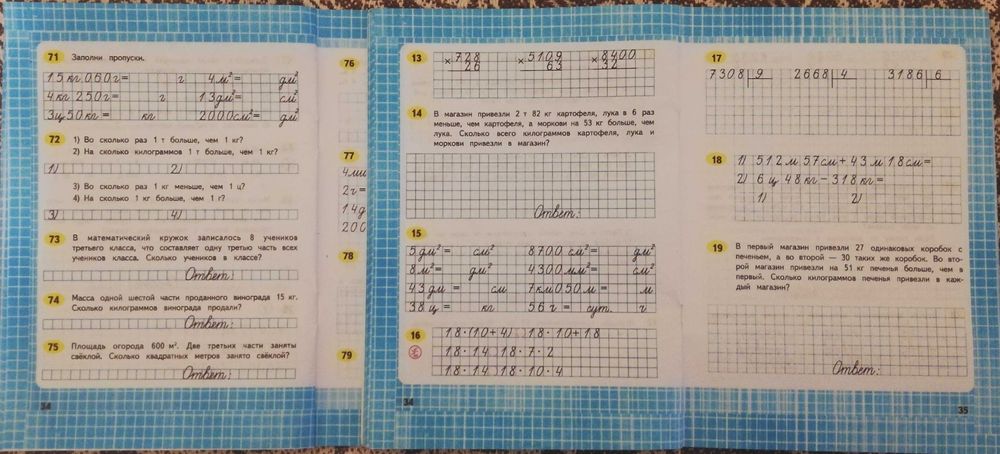 71 Заполни пропуски.
15 кг 060 г = г 4 м² = дм²
4 кг 250 г = г 13 дм² = см²
3 ц 50 кг = кг 2000 см² = дм²
72 1) Во сколько раз 1 т больше, чем 1 кг?
2) На сколько килограммов 1 т больше, чем 1 кг?
1) 2)
3) Во сколько раз 1 кг меньше, чем 1 ц?
4) На сколько 1 кг больше, чем 1 г?
3) 4)
73 В математический кружок записалось 8 учеников
третьего класса, что составляет одну третью часть всех
учеников класса. Сколько учеников в классе?
Ответ:
74 Масса одной шестой части проданного винограда 15 кг.
Сколько килограммов винограда продали?
Ответ:
75 Площадь огорода 600 м². Две третьих части заняты
свёклой. Сколько квадратных метров занято свёклой?
Ответ:
34
76
77
4 ми
2 г =
14 д
200
78
79
13 × 728 × 5109 × 8400
26 63 32
14 В магазин привезли 2 т 82 кг картофеля, лука в 6 раз
меньше, чем картофеля, а моркови на 53 кг больше, чем
лука. Сколько всего килограммов картофеля, лука и
моркови привезли в магазин?
Ответ:
15
5 дм² = см² 8700 см² = дм²
8 м² = дм² 4300 мм² = см²
43 дм = см 7 км 050 м = м
38 ц = кг 56 ч = сут. ч
16 18·(10+4) 18·10+18
18·14 18·7·2
18·14 18·10·4
34
17
7308 9 2668 4 3186 6
18 1) 512 м 57 см + 43 м 18 см =
2) 6 ц 48 кг − 318 кг =
1) 2)
19 В первый магазин привезли 27 одинаковых коробок с
печеньем, а во второй — 30 таких же коробок. Во вто-
рой магазин привезли на 51 кг печенья больше, чем в
первый. Сколько килограммов печенья привезли в каж-
дый магазин?
Ответ:
35